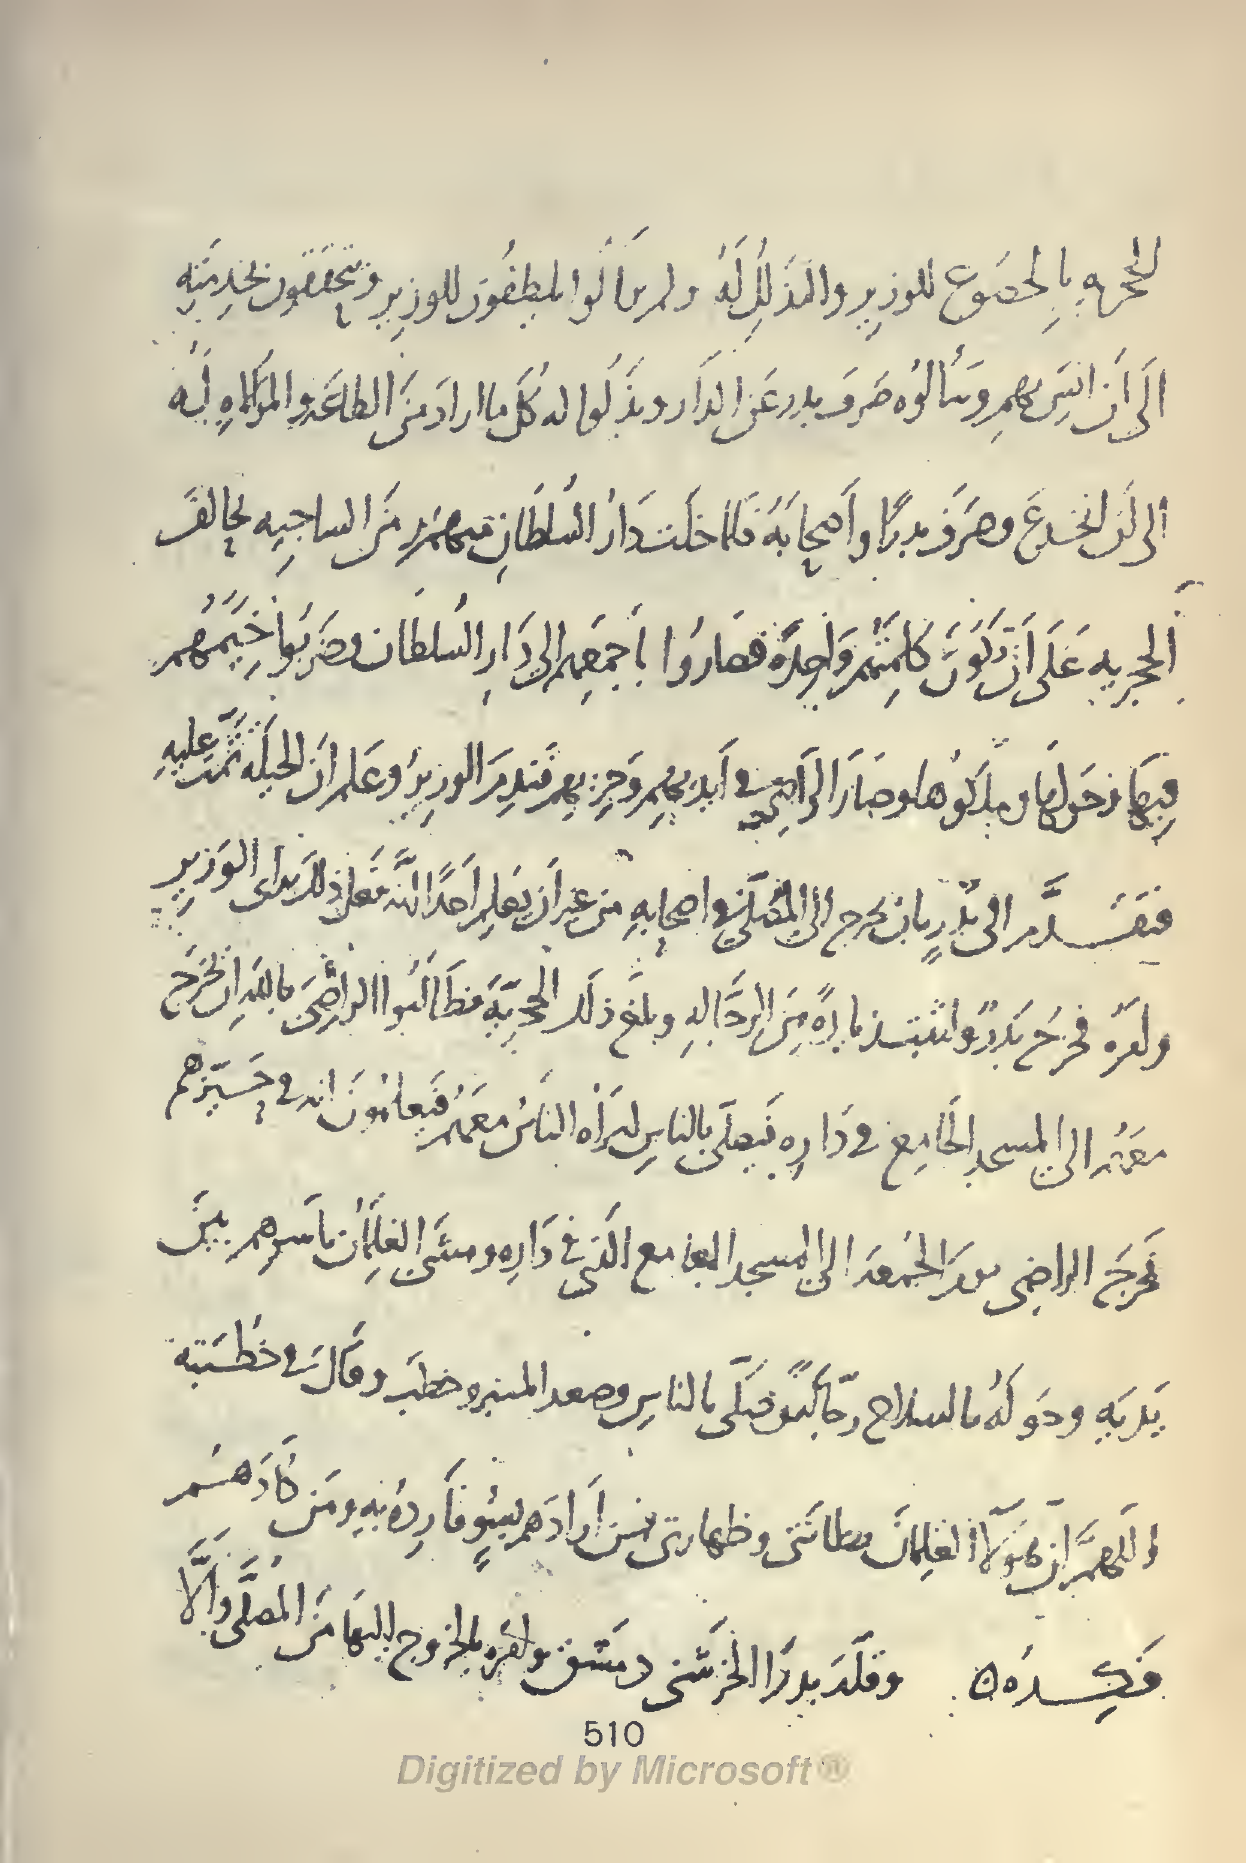 الحجريه بالخضوع للوزير والتذلل له ولم يزالوا يلطفون للوزير ويتحققون بخدمته
الى أن انس بهم وسألوه صرف بدر عن الدار وبذلوا له كل ما اراد من الطاعة والموالاه له
الى ان انخدع وصرف بدرا وأصحابه فلما خلت دار السلطان منهم من الساجيه تحالف
الحجريه على أن تكون كلمتهم واحدة فصاروا بأجمعهم الى دار السلطان وضربوا خيمهم
فيها وحولها وملكوها وصار الراضي في أيديهم وحيزهم فندم الوزير وعلم ان الحيلة تمت عليه
فتقدم الى بدر بان يخرج الى المصلى واصحابه من غير أن يعلم احدا انه فعل ذلك برأى الوزير
وامره فخرج بدر واثبت زيادة من الرجاله وبلغ ذلك الحجرية فطالبوا الراضي بالله ان يخرج
معهم الى المسجد الجامع في داره فيصلى بالناس ليراه الناس معهم فيعلمون انه في حيزهم
فخرج الراضي يوم الجمعة الى المسجد الجامع الذي في داره ومشى الغلمان باسرهم بين
يديه وحوله بالسلاح رجاله فصلى بالناس وصعد المنبر وخطب وقال في خطبته
اللهم ان هؤلاء الغلمان بطانتي وظهارتي فمن أرادهم بسوء فأرده به ومن كادهم
فكده وقلد بدرا الخرشني دمشق وامره بالخروج اليها من المصلى وألا
510
Digitized by Microsoft®